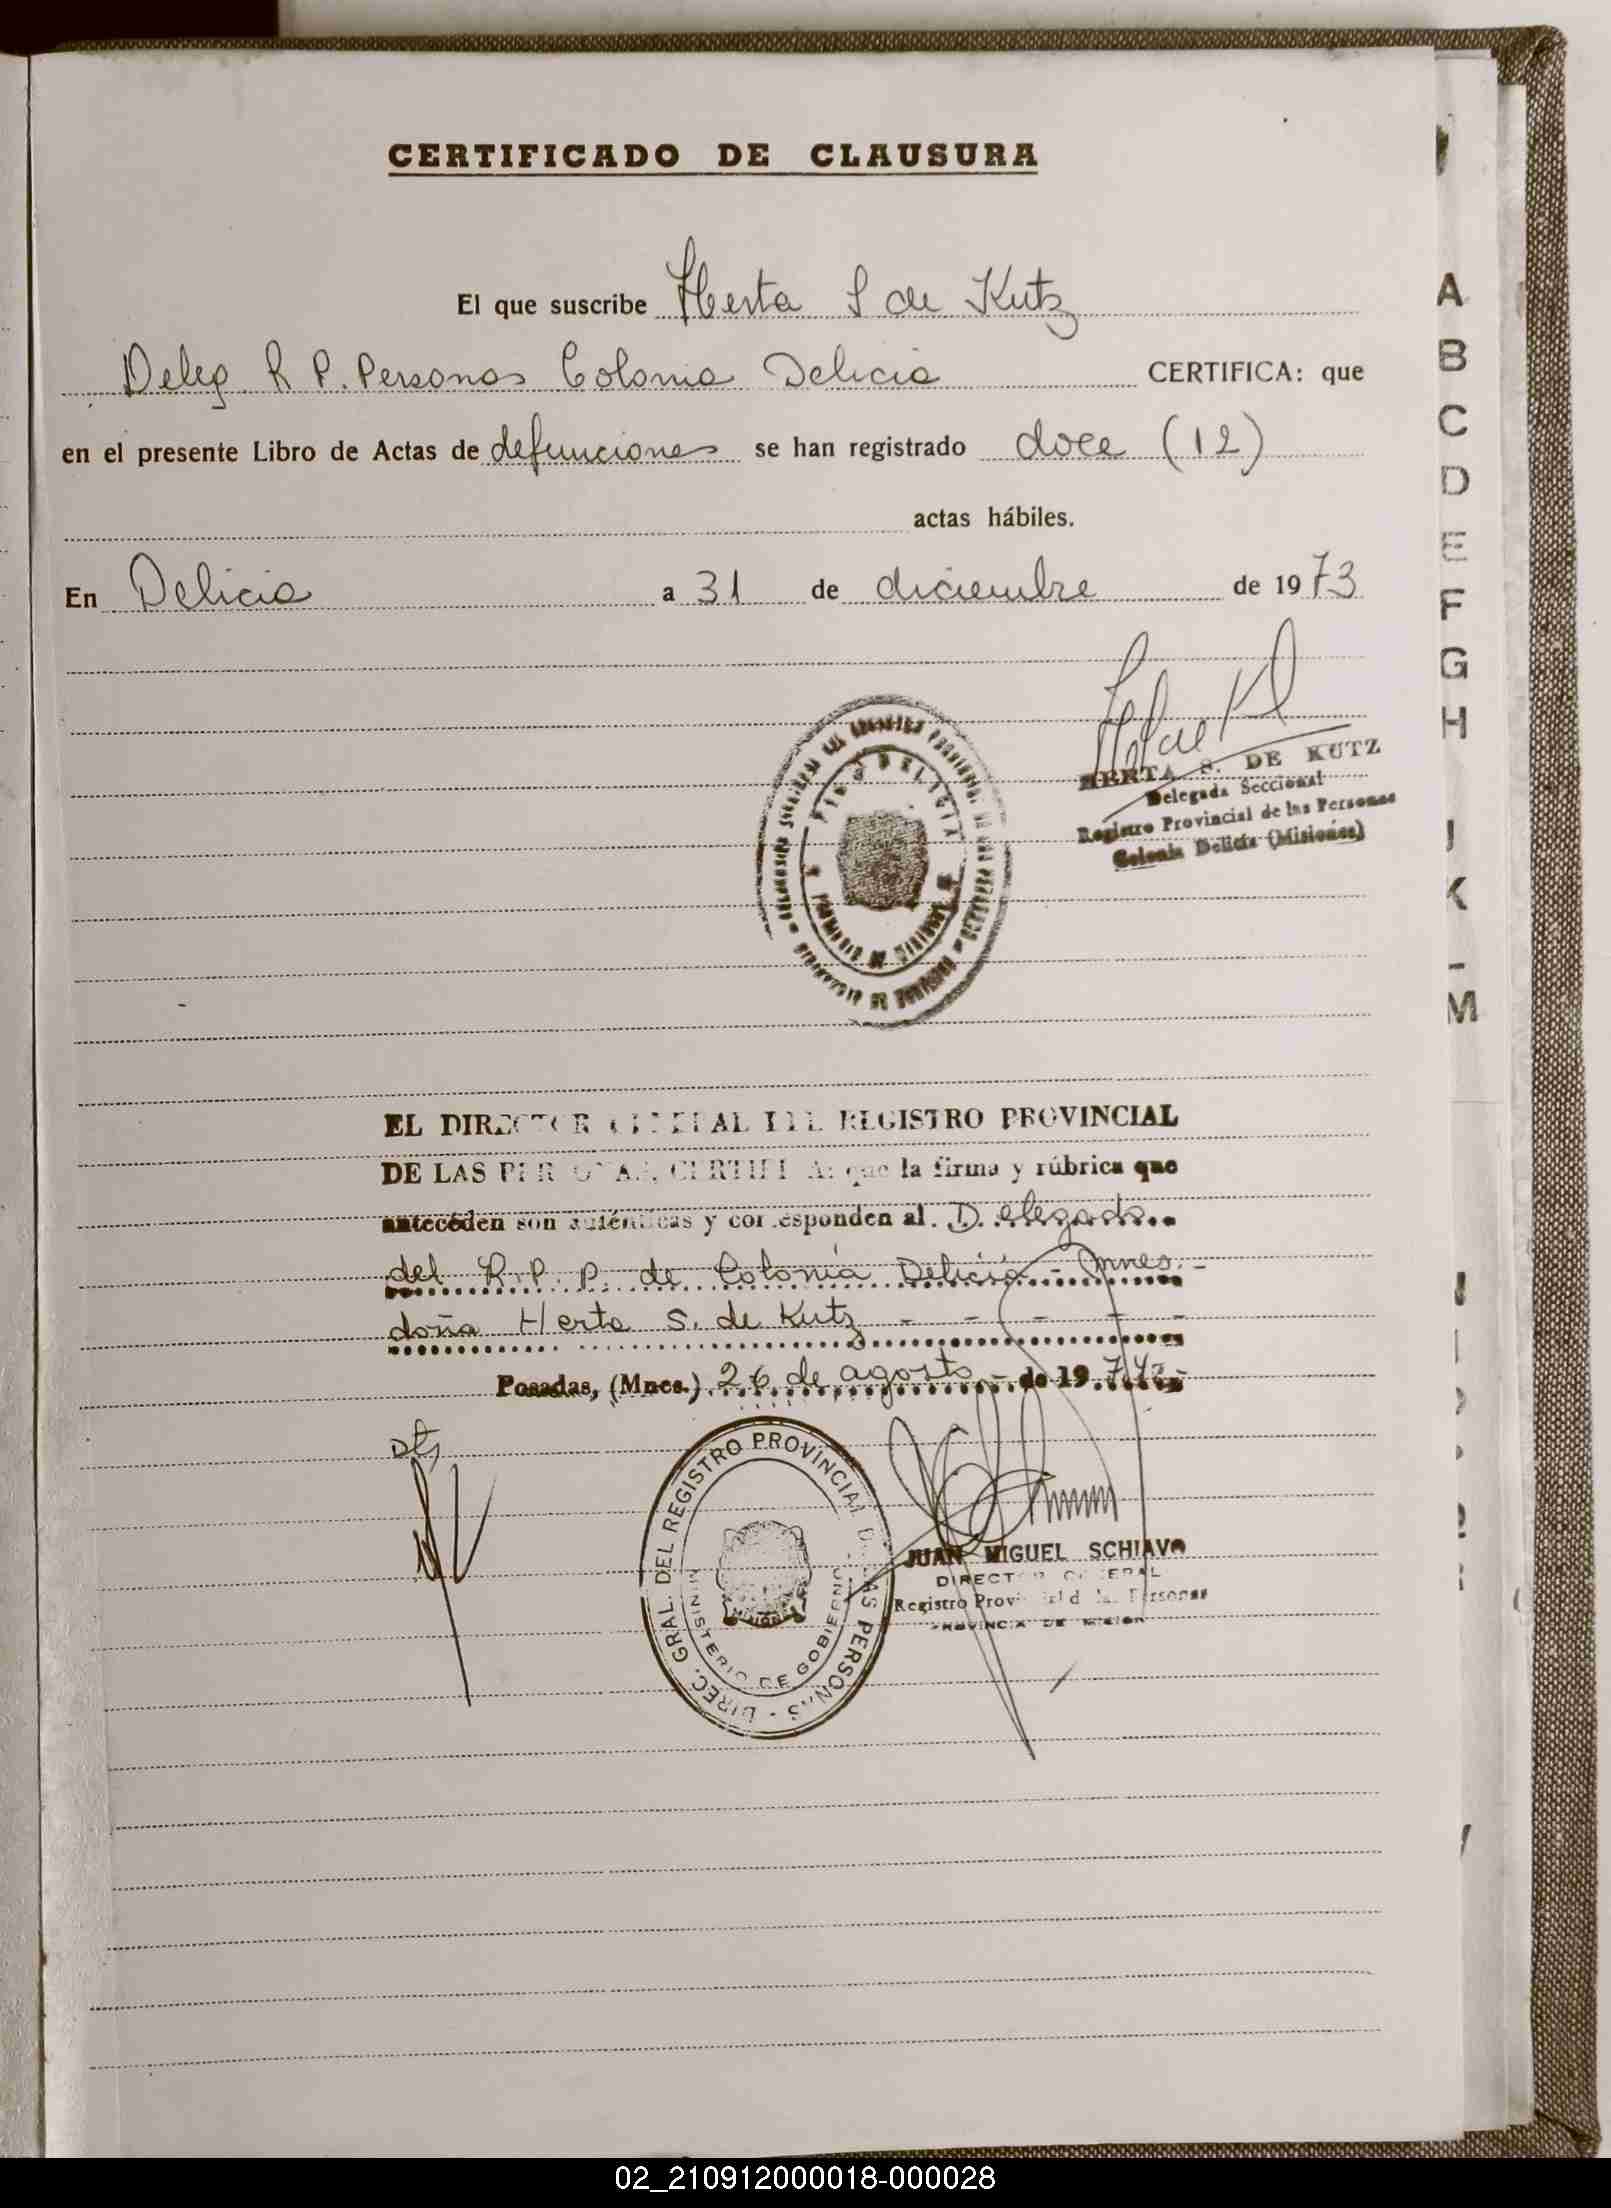 CERTIFICADO DE CLAUSURA
El que suscribe Herta S de Kutz
Deleg R P. Personas Colonia Delicia CERTIFICA: que
en el presente Libro de Actas de defunciones se han registrado doce (12)
actas hábiles.
En Delicia a 31 de diciembre de 1973
HERTA S. DE KUTZ
Delegada Seccional
Registro Provincial de las Personas
Colonia Delicia (Misiones)
EL DIRECTOR GENERAL DEL REGISTRO PROVINCIAL
DE LAS PERSONAS, CERTIFICA: que la firma y rúbrica que
anteceden son auténticas y corresponden al Delegado
del R. P. P. de Colonia Delicia - Mnes. -
doña Herta S. de Kutz - - - - -
Posadas, (Mnes.) 26 de agosto - de 1974 -
DIREC. GRAL. DEL REGISTRO PROVINCIAL DE LAS PERSONAS -
MINISTERIO DE GOBIERNO
JUAN MIGUEL SCHIAVO
DIRECTOR GENERAL
Registro Provincial de las Personas
PROVINCIA DE MISION
A
B
C
D
E
F
G
H
J
K
-
M
02_210912000018-000028